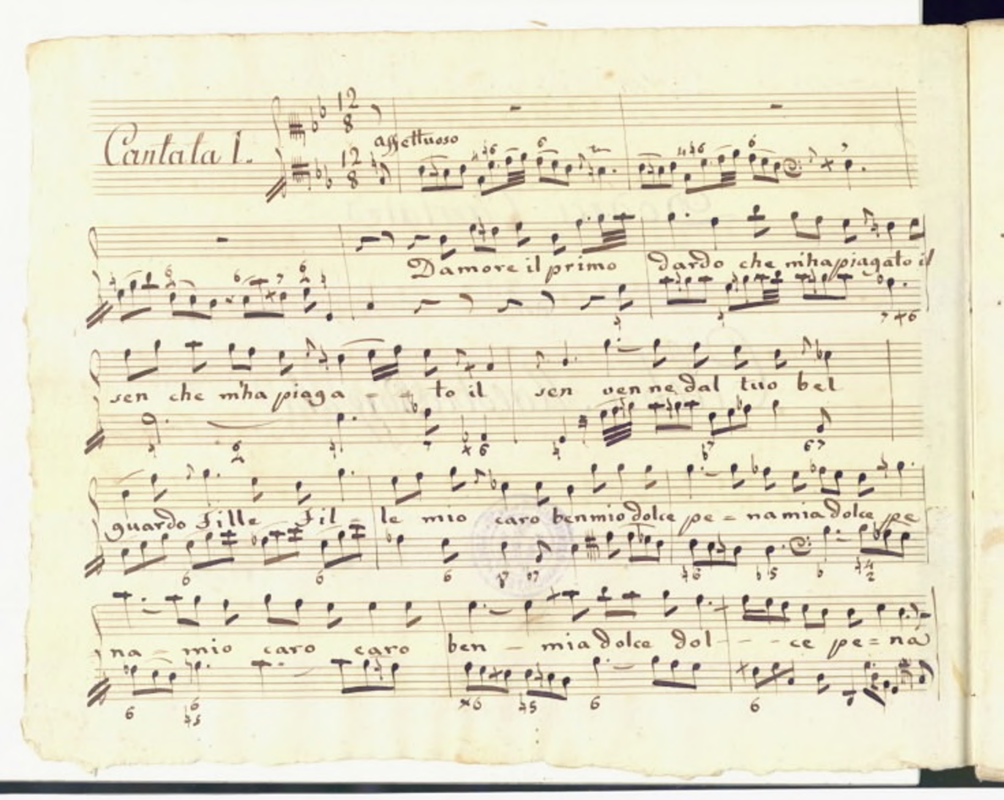 Cantata 1.
affettuoso
D'amore il primo dardo che m'ha piagato il
sen che m'ha piaga to il sen venne dal tuo bel
guardo Fille Fil - le mio caro ben mio dolce pe = na mia dolce pe
na - mio caro caro ben - mia dolce dol - - - ce pe = na